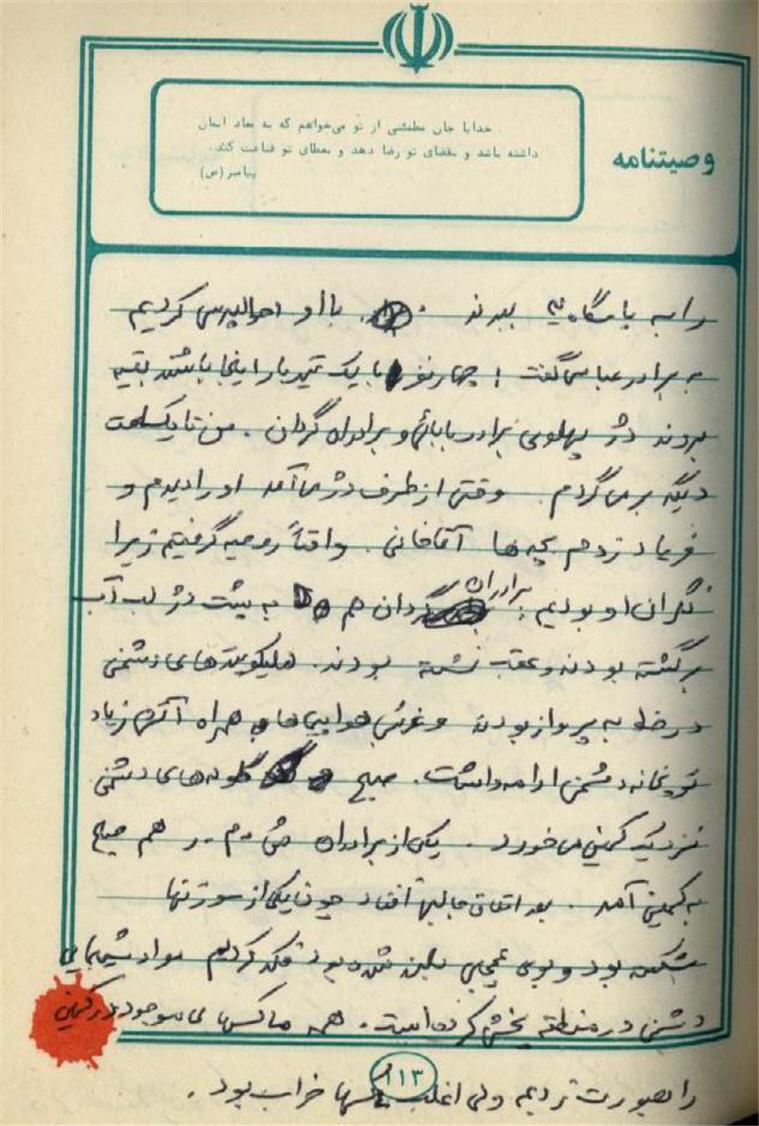 خدایا جان مطمئنی از تو می‌خواهم که به معاد ایمان
داشته باشد و بقضای تو رضا دهد و بعطای تو قناعت کند.
پیامبر(ص)
وصیتنامه
را به پاسگاه ببرند . با او احوالپرسی کردیم
به برادر عباسی گفت : چهار نفر با یک تیربار اینجا باشند بقیه
بروند دژ پهلوی برادر بابائی و برادران گردان . من تا یکساعت
دیگه برمی‌گردم . وقتی از طرف دژ می‌آمد او را دیدم و
فریاد زدم بچه‌ها آقاخانی . واقعاً روحیه گرفتیم زیرا
نگران او بودیم . برادران گردان هم به پشت دژ لب آب
برگشته بودند و عقب نشسته بودند . هلیکوپترهای دشمن
در خط به پرواز بودند و غرش هواپیماها به همراه آتش زیاد
توپخانه دشمن ادامه داشت . صبح گلوله‌های دشمن
نزدیک کمین می‌خورد . یکی از برادران هم صبح
به کمین آمد . بعد اتفاق جالبی افتاد چون یکی از
شکسته بود و بوی عجیبی بلند شده بود فکر کردیم مواد شیمیایی
دشمن در منطقه پخش کرده است . همه ماسکهای موجود در کمین
را بصورت زدیم ولی اغلب ماسکها خراب بود .
۱۱۳